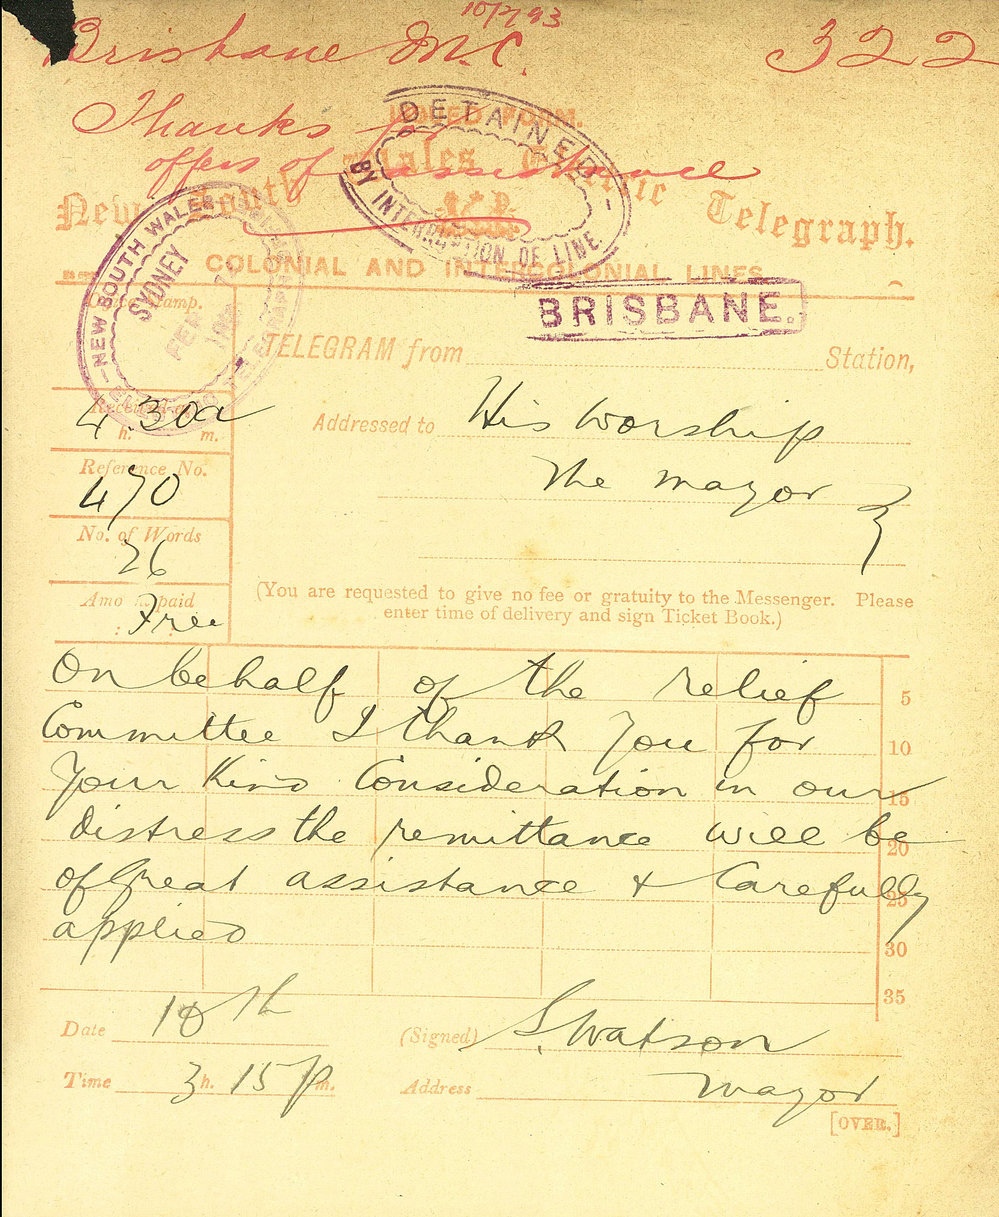 10/2/93
Brisbane M.C. 322
Thanks for
offers of assistance
New South Wales Electric Telegraph.
V R
COLONIAL AND INTERCOLONIAL LINES
DETAINED
BY INTERRUPTION OF LINE.
NEW SOUTH WALES
SYDNEY
FEB
BRISBANE.
Office Stamp.
TELEGRAM from Station,
Received
4. h. 30 a m.
Addressed to His Worship
The Mayor
Reference No.
470
No. of Words
26
Amo paid
Free
(You are requested to give no fee or gratuity to the Messenger. Please
enter time of delivery and sign Ticket Book.)
On behalf of the relief 5
Committee I thank you for 10
Your Kind Consideration in our 15
distress the remittance will be 20
of Great assistance & Carefully 25
applied
30
35
Date 10th
(Signed) S. Watson
Time 3 h. 15 p m.
Address Mayor
[OVER.]